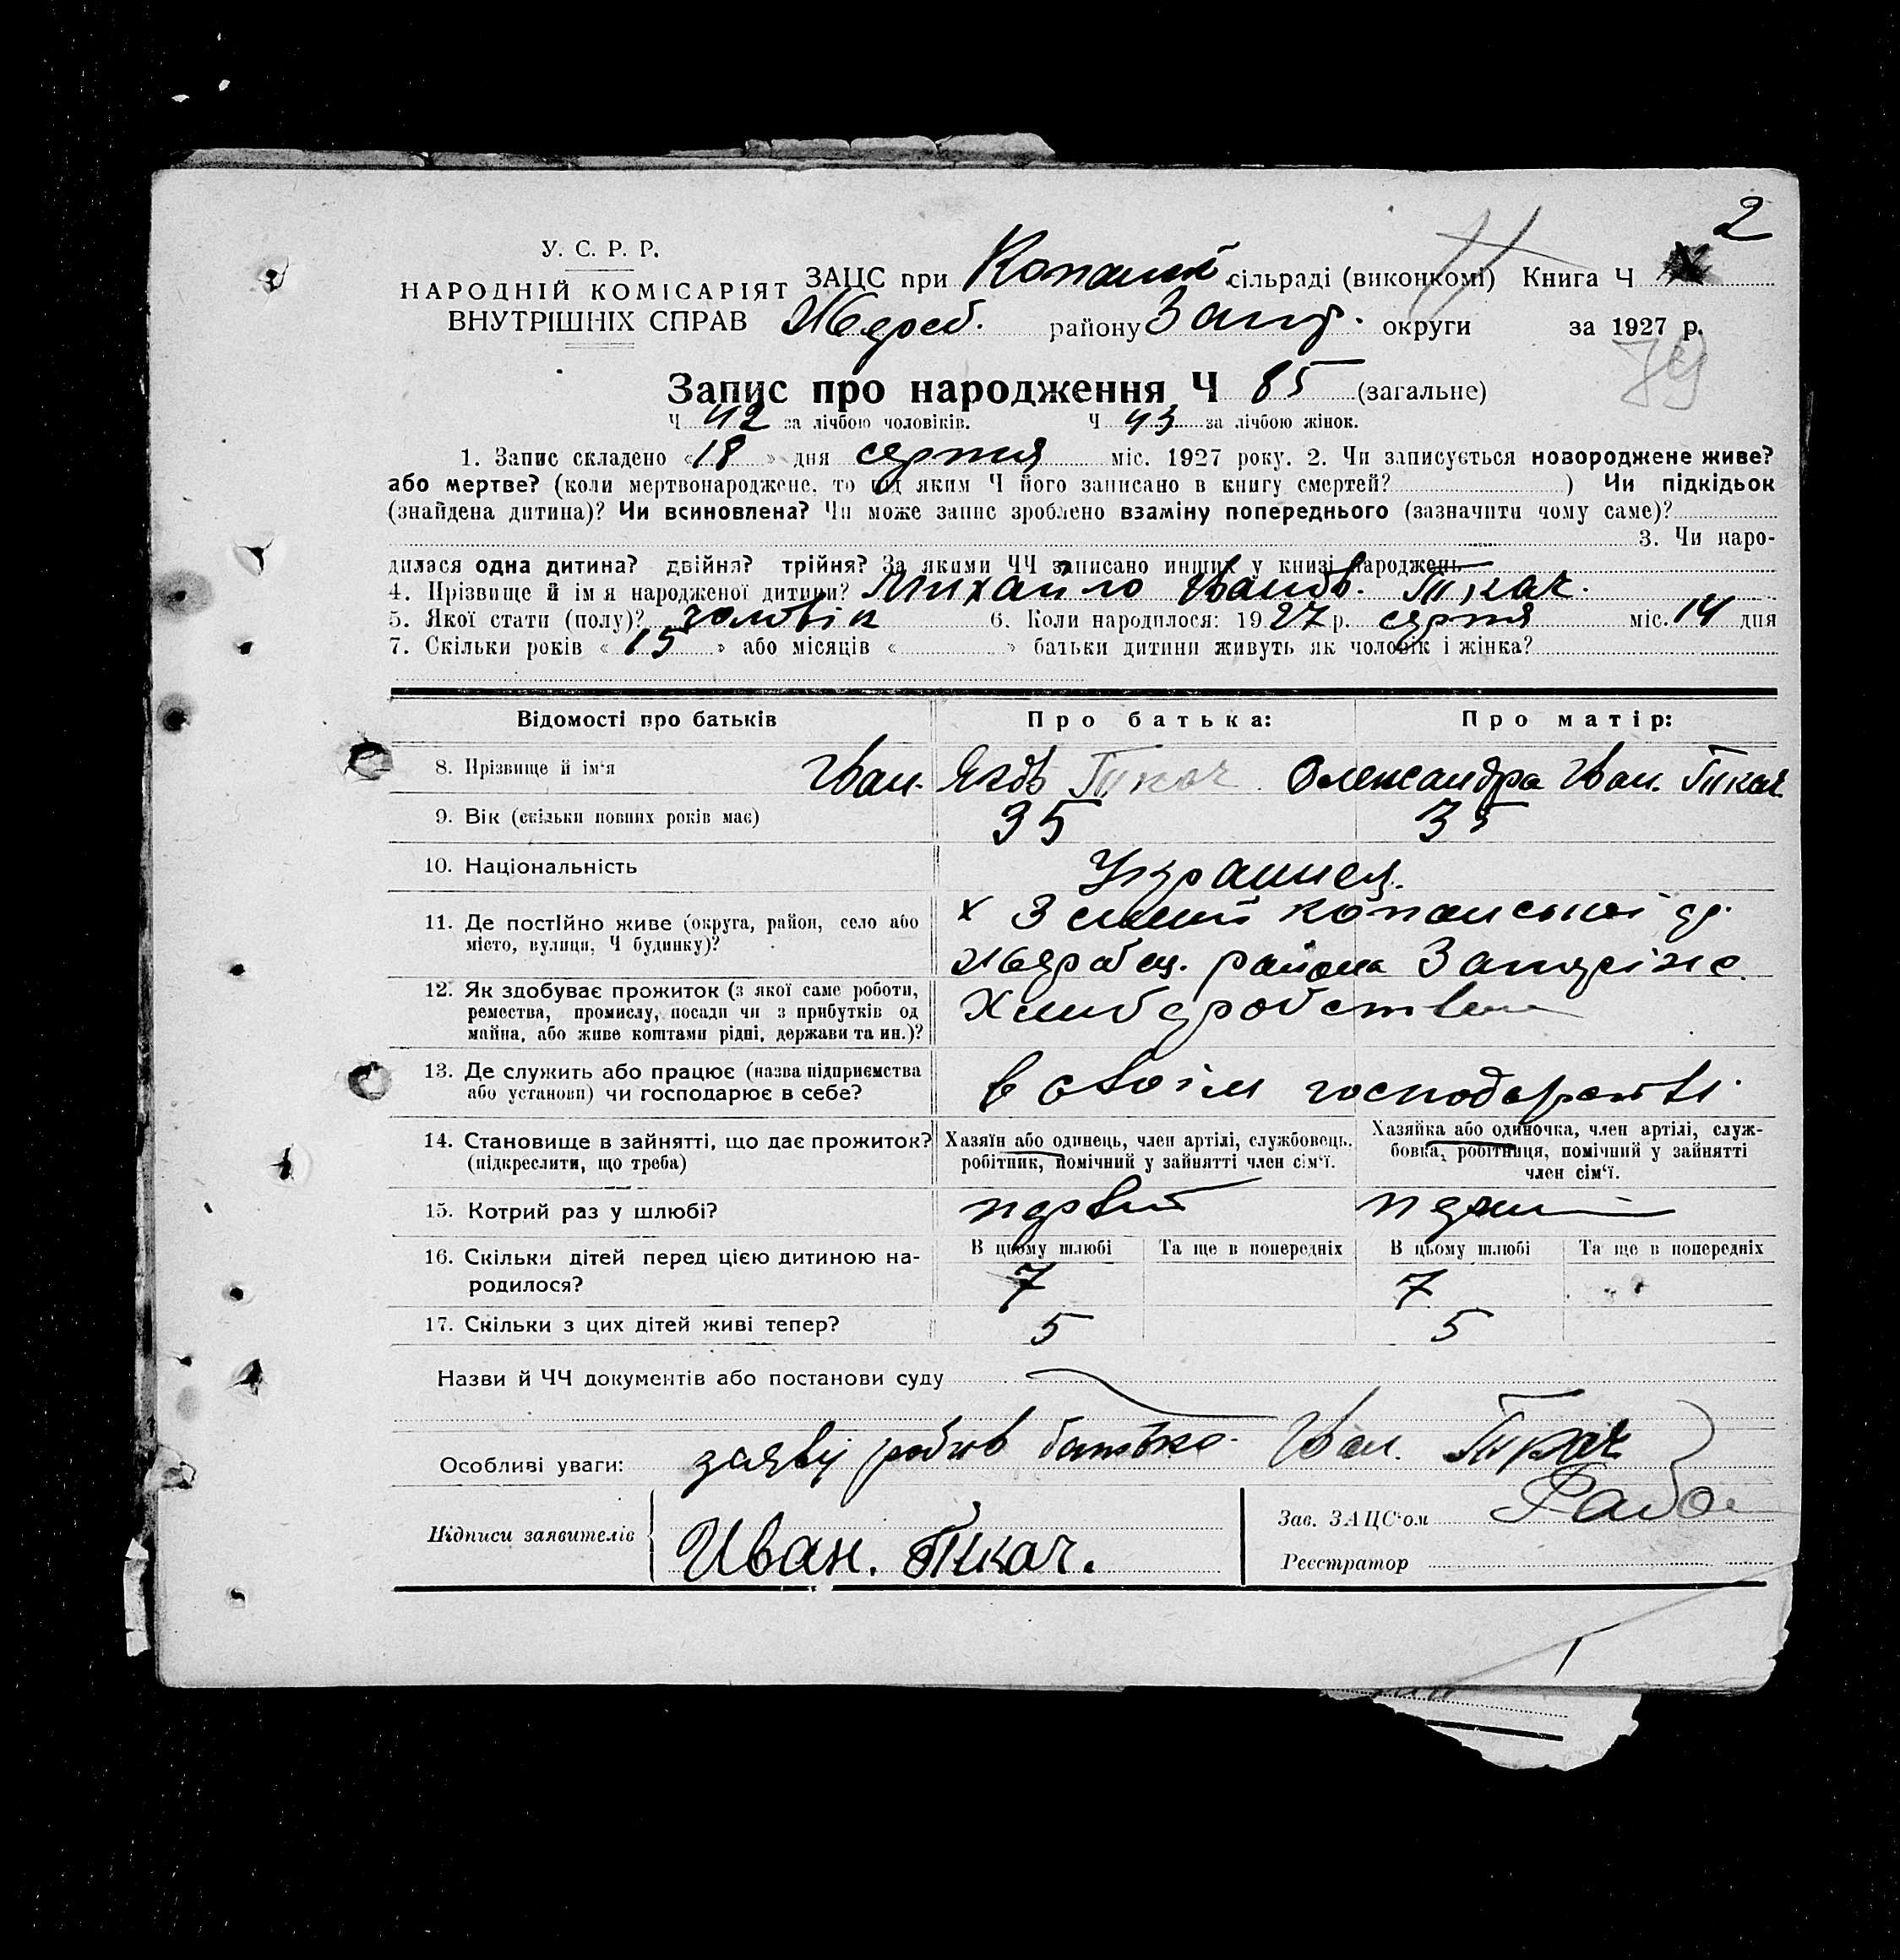 2
У. С. Р. Р.
НАРОДНІЙ КОМІСАРІЯТ
ВНУТРІШНІХ СПРАВ
ЗАЦС при Копани сільраді (виконкомі) Книга Ч
Жереб. району Запор. округи за 1927 р.
79
Запис про народження Ч 85 (загальне)
Ч 42 за лічбою чоловіків. Ч 43 за лічбою жінок.
1. Запис складено «18» дня серпня міс. 1927 року. 2. Чи записується новороджене живе?
або мертве? (коли мертвонароджене, то під яким Ч його записано в книгу смертей? ) Чи підкідьок
(знайдена дитина)? Чи всиновлена? Чи може запис зроблено взаміну попереднього (зазначити чому саме)?
3. Чи наро-
дилася одна дитина? двійня? трійня? За якими ЧЧ записано инших у книзі народжень
4. Прізвище й ім я народженої дитини? Михайло Іванов. Ткач.
5. Якої стати (полу)? чоловік 6. Коли народилося: 1927 р. серпня міс. 14 дня
7. Скільки років «15» або місяців « » батьки дитини живуть як чоловік і жінка?
Відомості про батьків Про батька: Про матір:
8. Прізвище й ім‘я Іван. Яков Ткач Олександра Іван. Ткач
9. Вік (скільки повних років має) 35 35
10. Національність Украинец.
11. Де постійно живе (округа, район, село або
місто, вулиця, Ч будинку)?
х Зелений копанської
Жеребец. района Запоріж.
12. Як здобуває прожиток (з якої саме роботи,
ремества, промислу, посади чи з прибутків од
майна, або живе коштами рідні, держави та ин.)?
Хлиборобством
13. Де служить або працює (назва підприємства
або установи) чи господарює в себе?
в своїм господарстві.
14. Становище в зайнятті, що дає прожиток?
(підкреслити, що треба)
Хазяїн або одинець, член артілі, службовець,
робітник, помічний у зайнятті член сім‘ї.
Хазяйка або одиночка, член артілі, служ-
бовка, робітниця, помічний у зайнятті
член сім‘ї.
15. Котрий раз у шлюбі? первий
16. Скільки дітей перед цією дитиною на-
родилося?
В цьому шлюбі Та ще в попередніх В цьому шлюбі Та ще в попередніх
7 7
17. Скільки з цих дітей живі тепер? 5 5
Назви й ЧЧ документів або постанови суду
Особливі уваги: заяву робив батько. Іван. Ткач
Підписи заявителів Иван. Ткач.
Зав. ЗАЦС‘ом
Реєстратор